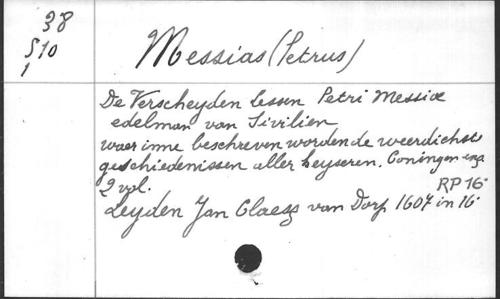 38
510
1
Messias (Petrus)
De Verscheyden lessen Petri Messiæ
edelman van Sivilien
waer inne beschreven worden de weerdichste
geschiedenissen aller keyseren, Coningen enz
2 vol.
RP 16°
Leyden Jan Claesz van Dorp 1607 in 16°